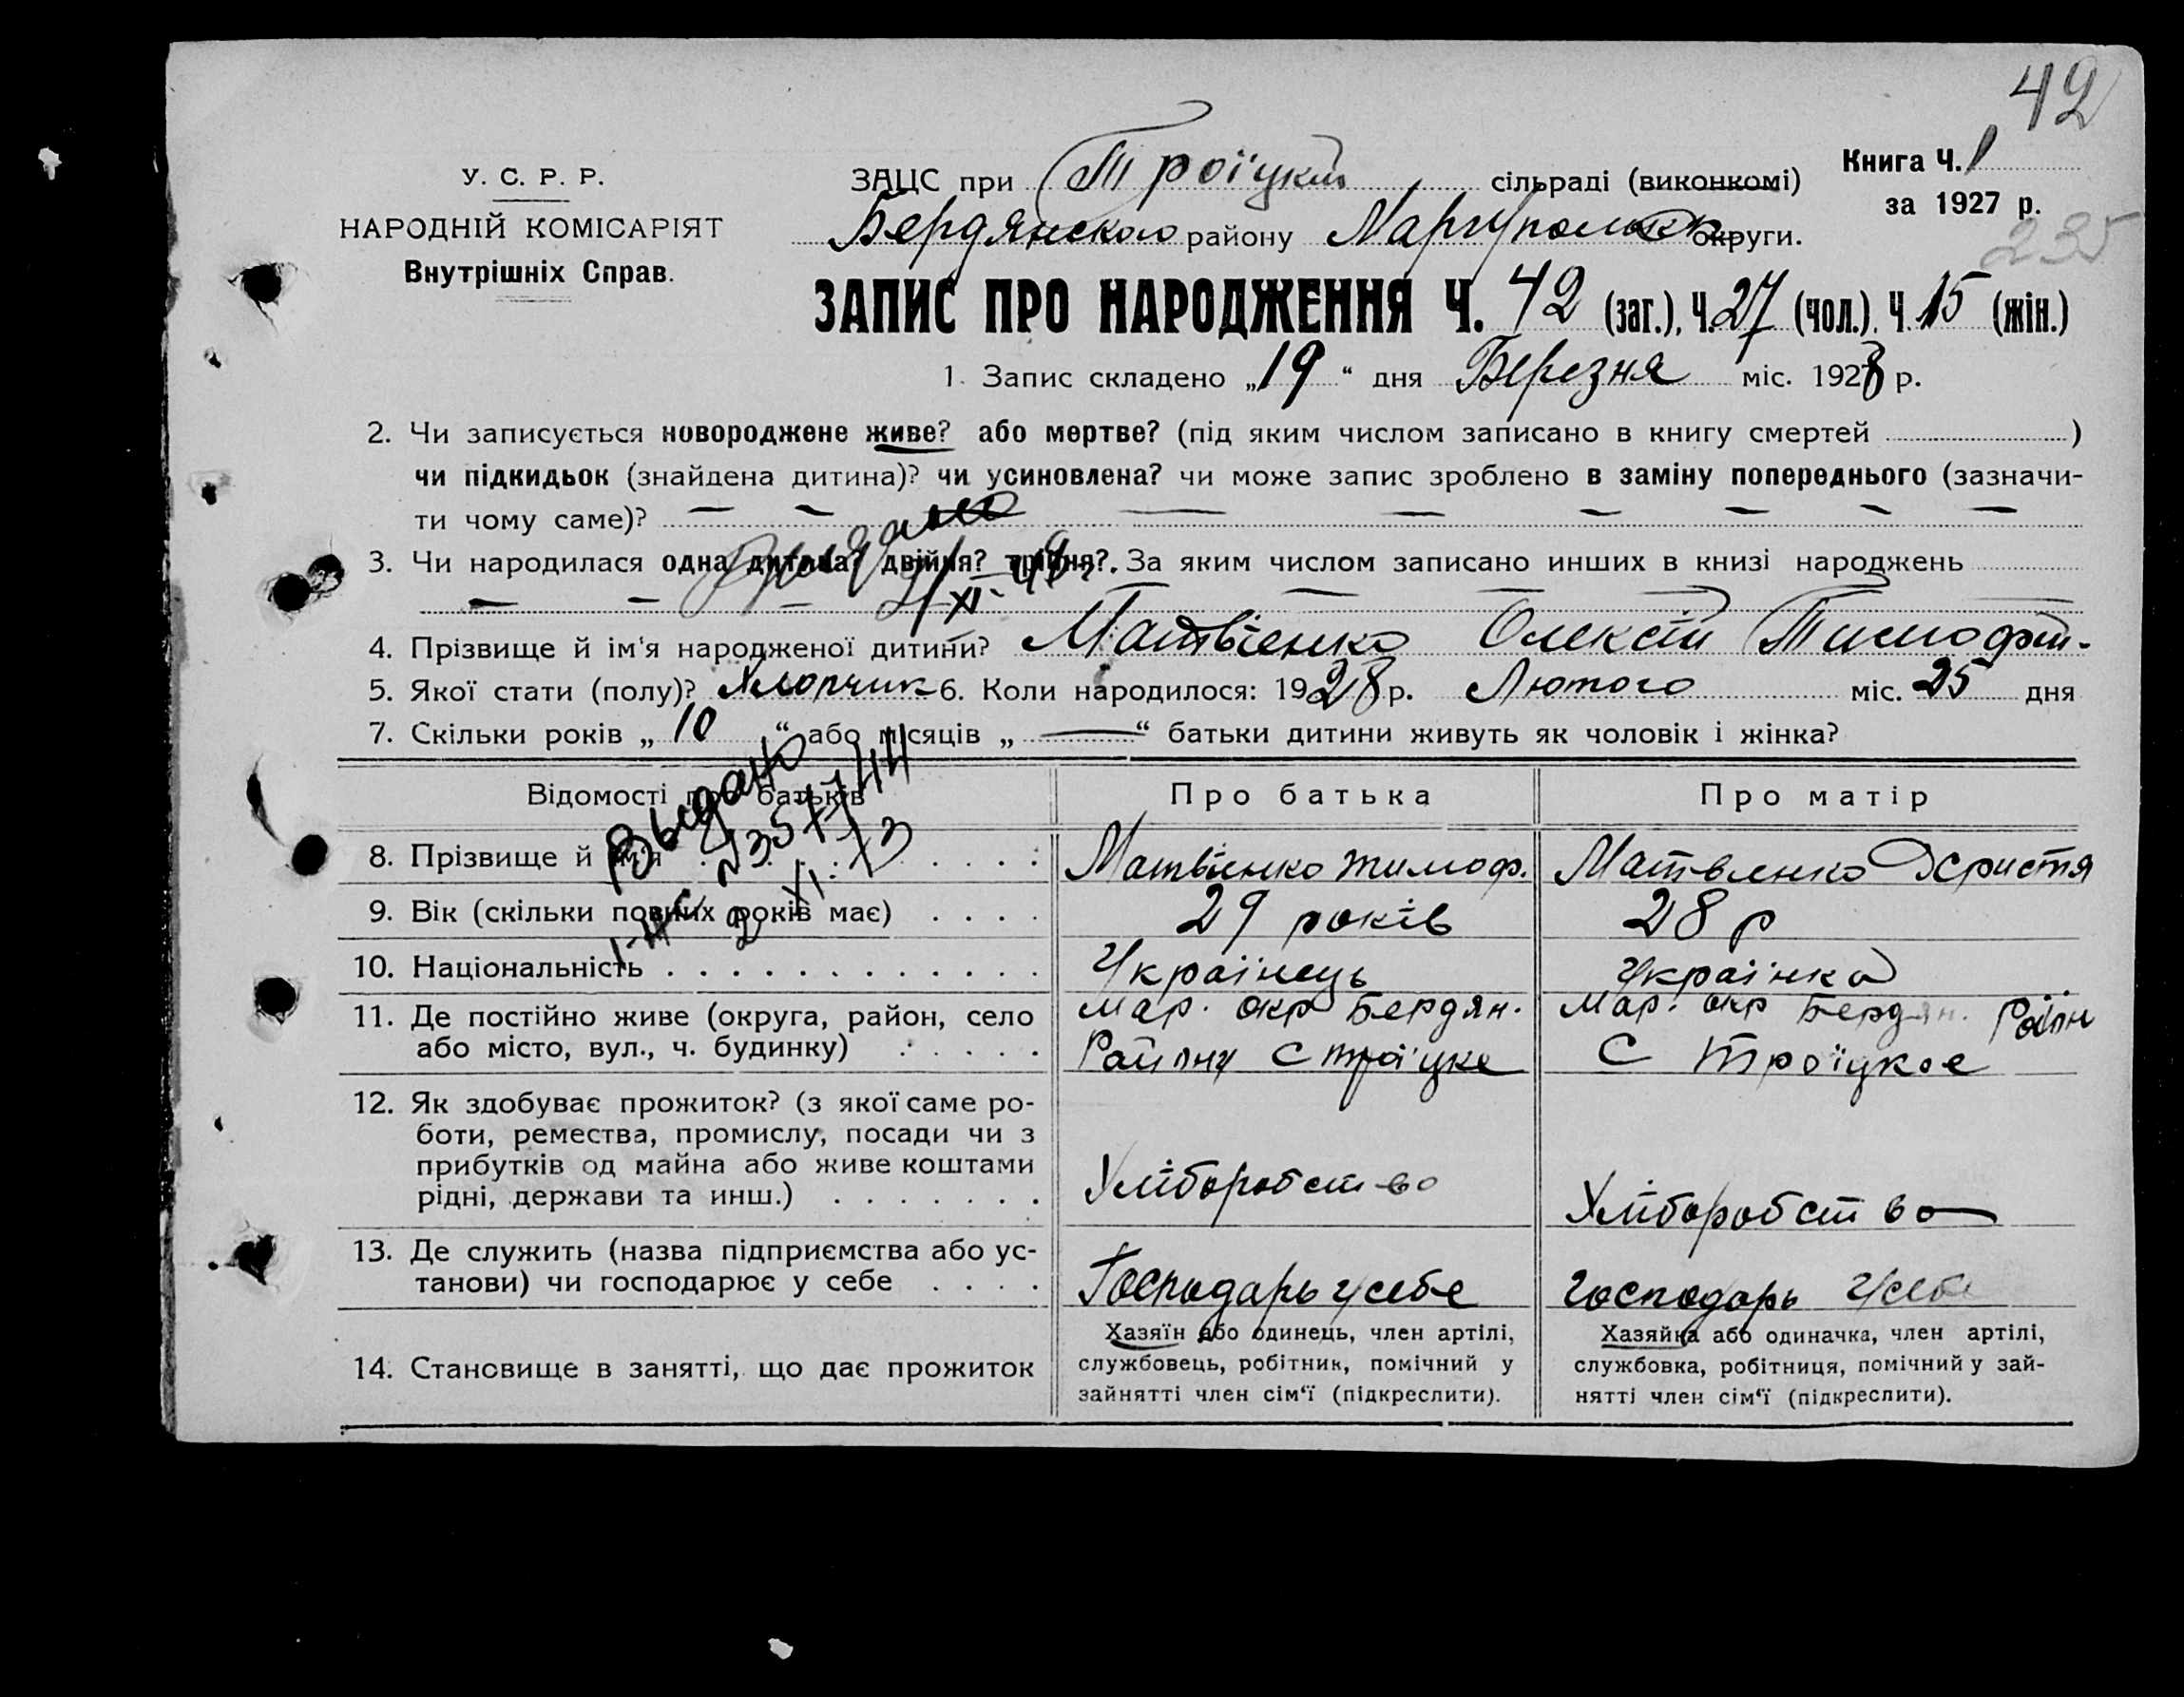 42
У. С. Р. Р.
НАРОДНІЙ КОМІСАРІЯТ
Внутрішніх Справ.
ЗАЦС при Троїцкій сільраді (виконкомі)
Книга Ч. 1
за 1927 р.
Бердянского району Маріупольськ округи.
235
ЗАПИС ПРО НАРОДЖЕННЯ Ч. 42 (заг.), Ч. 27 (чол.), Ч. 15 (жін.)
1. Запис складено „19“ дня Березня міс. 1928 р.
2. Чи записується новороджене живе? або мертве? (під яким числом записано в книгу смертей )
чи підкидьок (знайдена дитина)? чи усиновлена? чи може запис зроблено в заміну попереднього (зазначи-
ти чому саме)? — — — — — — — —
3. Чи народилася одна дитина? двійня? трійня?. За яким числом записано инших в книзі народжень
4. Прізвище й ім'я народженої дитини? Матвієнко Олексій Тимофій.
5. Якої стати (полу)? Хлопчик 6. Коли народилося: 1928 р. Лютого міс. 25 дня
7. Скільки років „ 10 “ або місяців „ — “ батьки дитини живуть як чоловік і жінка?
Выдано
Відомості про батьків
Про батька
Про матір
8. Прізвище й ім'я
Матвієнко Тимоф.
Матвієнко Христя
9. Вік (скільки повних років має)
29 років
28 р
10. Національність
Українець
Українка
11. Де постійно живе (округа, район, село
або місто, вул., ч. будинку)
Мар. окр Бердян.
Району С Троїцке
Мар. окр Бердян. Район
С Троїцкое
12. Як здобуває прожиток? (з якої саме ро-
боти, ремества, промислу, посади чи з
прибутків од майна або живе коштами
рідні, держави та инш.)
Хліборобство
Хліборобство
13. Де служить (назва підприємства або ус-
танови) чи господарює у себе
Господарь у себе
Господарь у себе
14. Становище в занятті, що дає прожиток
Хазяїн або одинець, член артілі,
службовець, робітник, помічний у
зайнятті член сім'ї (підкреслити).
Хазяйка або одиначка, член артілі,
службовка, робітниця, помічний у зай-
нятті член сім'ї (підкреслити).